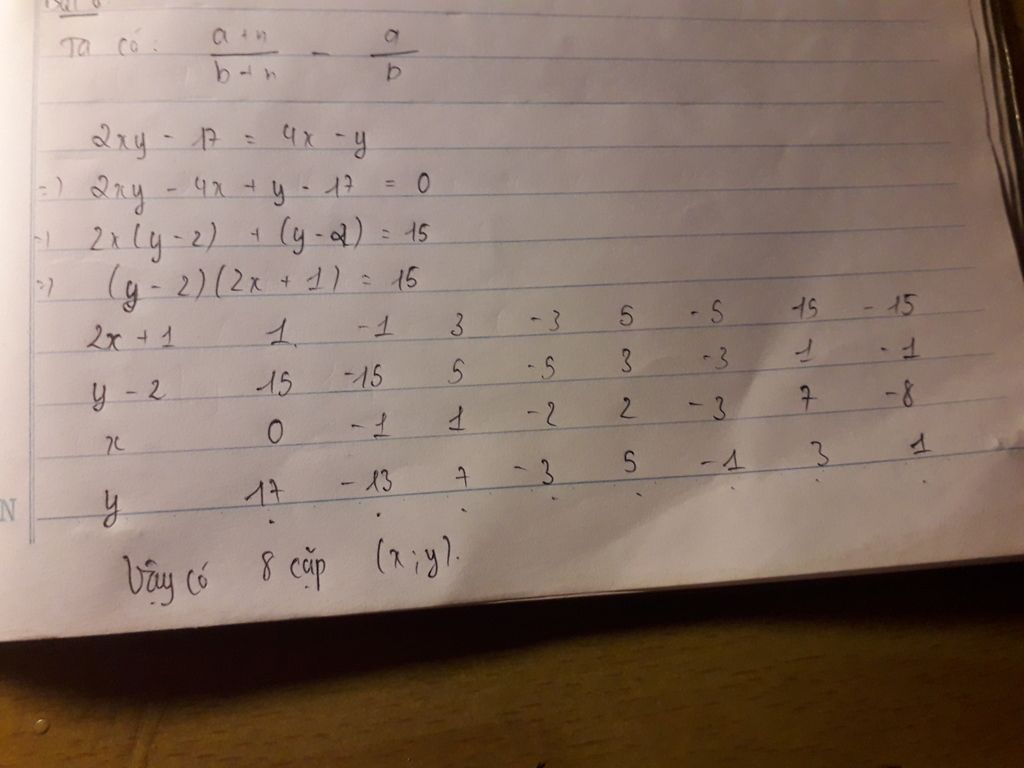 Ta có: a+n/b+n - a/b
2xy - 17 = 4x - y
=) 2xy - 4x + y - 17 = 0
=) 2x(y-2) + (y-2) = 15
=) (y-2)(2x+1) = 15
2x+1 1 -1 3 -3 5 -5 15 -15
y-2 15 -15 5 -5 3 -3 1 -1
x 0 -1 1 -2 2 -3 7 -8
y 17 -13 7 -3 5 -1 3 1
N
Vậy có 8 cặp (x;y).